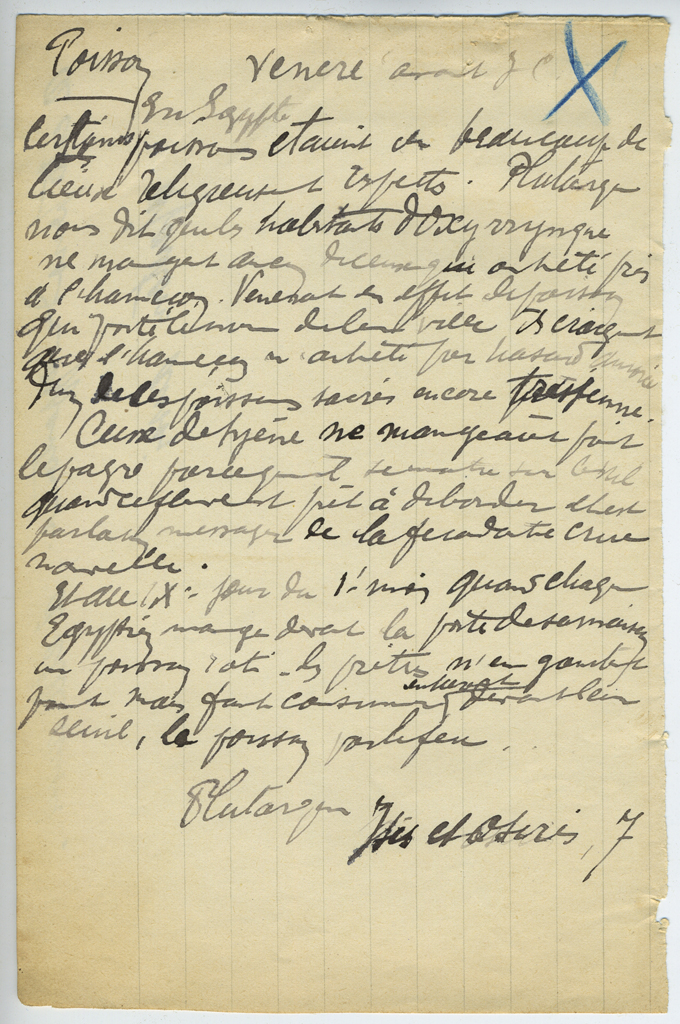 Poisson vénéré avant J C.
En Egypte
Certains poissons étaient en beaucoup de
lieux religieusement respectés. Plutarque
nous dit que les habitants d'Oxyrrynque
ne mangent aucun de ceux qui ont été pris
à l'hameçon. Vénérant en effet le poisson
qui porte le nom de leur ville Ils craignent
que l'hameçon n'ait été par hasard
d'un de ces poissons sacrés encore
Ceux de Syène ne mangeaient point
le pagre parce qu'il se montre sur le Nil
quand ce fleuve est prêt à déborder et est
messager de la féconde crue
nouvelle.
Et au IX e jour du 1er mois quand chaque
Egyptien mange devant la porte de sa maison
un poisson rôti les prêtres n'en goûtent
point mais font consumer entièrement devant leur
seuil, le poisson par le feu.
Plutarque
Isis et Osiris, 7